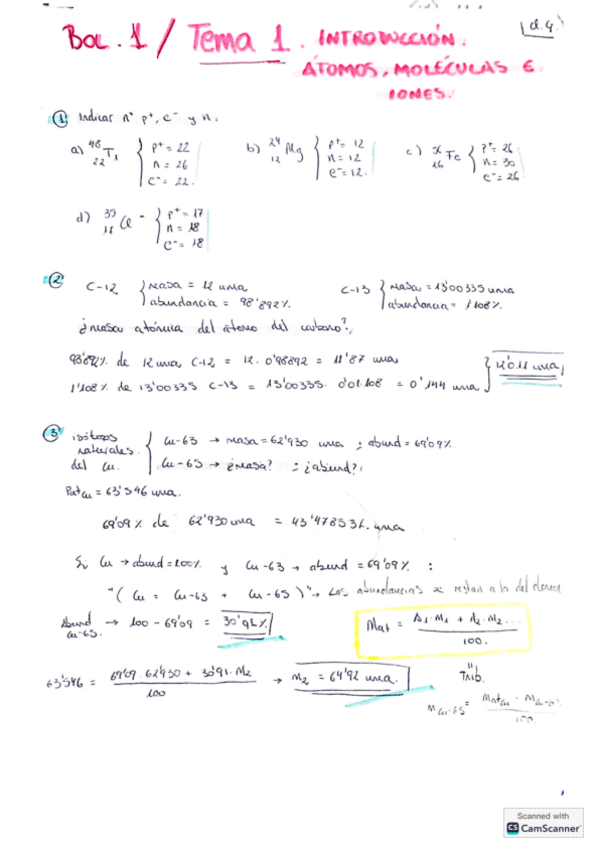 d.4.
BOL. 1 / Tema 1. INTRODUCCIÓN.
ÁTOMOS, MOLÉCULAS E
IONES.
① Indicar nº p⁺, e⁻ y n.
a) 48 22 Ti { p⁺ = 22 n = 26 e⁻ = 22.
b) 24 12 Mg { p⁺ = 12 n = 12 e⁻ = 12.
c) 56 26 Fe { p⁺ = 26 n = 30 e⁻ = 26
d) 35 Cl⁻ { p⁺ = 17 n = 18 e⁻ = 18
② C-12 { masa = 12 uma abundancia = 98'892%.
C-13 { masa = 13'00335 uma abundancia = 1'108%
¿masa atómica del átomo del carbono?
98'892% de 12 uma C-12 = 12 · 0'98892 = 11'87 uma
1'108% de 13'00335 C-13 = 13'00335 · 0'01108 = 0'144 uma } 12'011 uma
③ isótopos naturales del Cu. { Cu-63 → masa = 62'930 uma ; abund = 69'09%
Cu-65 → ¿masa? ; ¿abund?
Pat Cu = 63'546 uma.
69'09% de 62'930 uma = 43'478336 uma
Si Cu → abund = 100% y Cu-63 → abund = 69'09% :
"( Cu = Cu-63 + Cu-65 )" → Las abundancias se restan a la del
Abund Cu-65. → 100 - 69'09 = 30'91%
Mat = A₁·M₁ + A₂·M₂... / 100.
63'546 = 69'09 · 62'930 + 30'91 · M₂ / 100 → M₂ = 64'92 uma.
M Cu-65 =
Scanned with
CS CamScanner